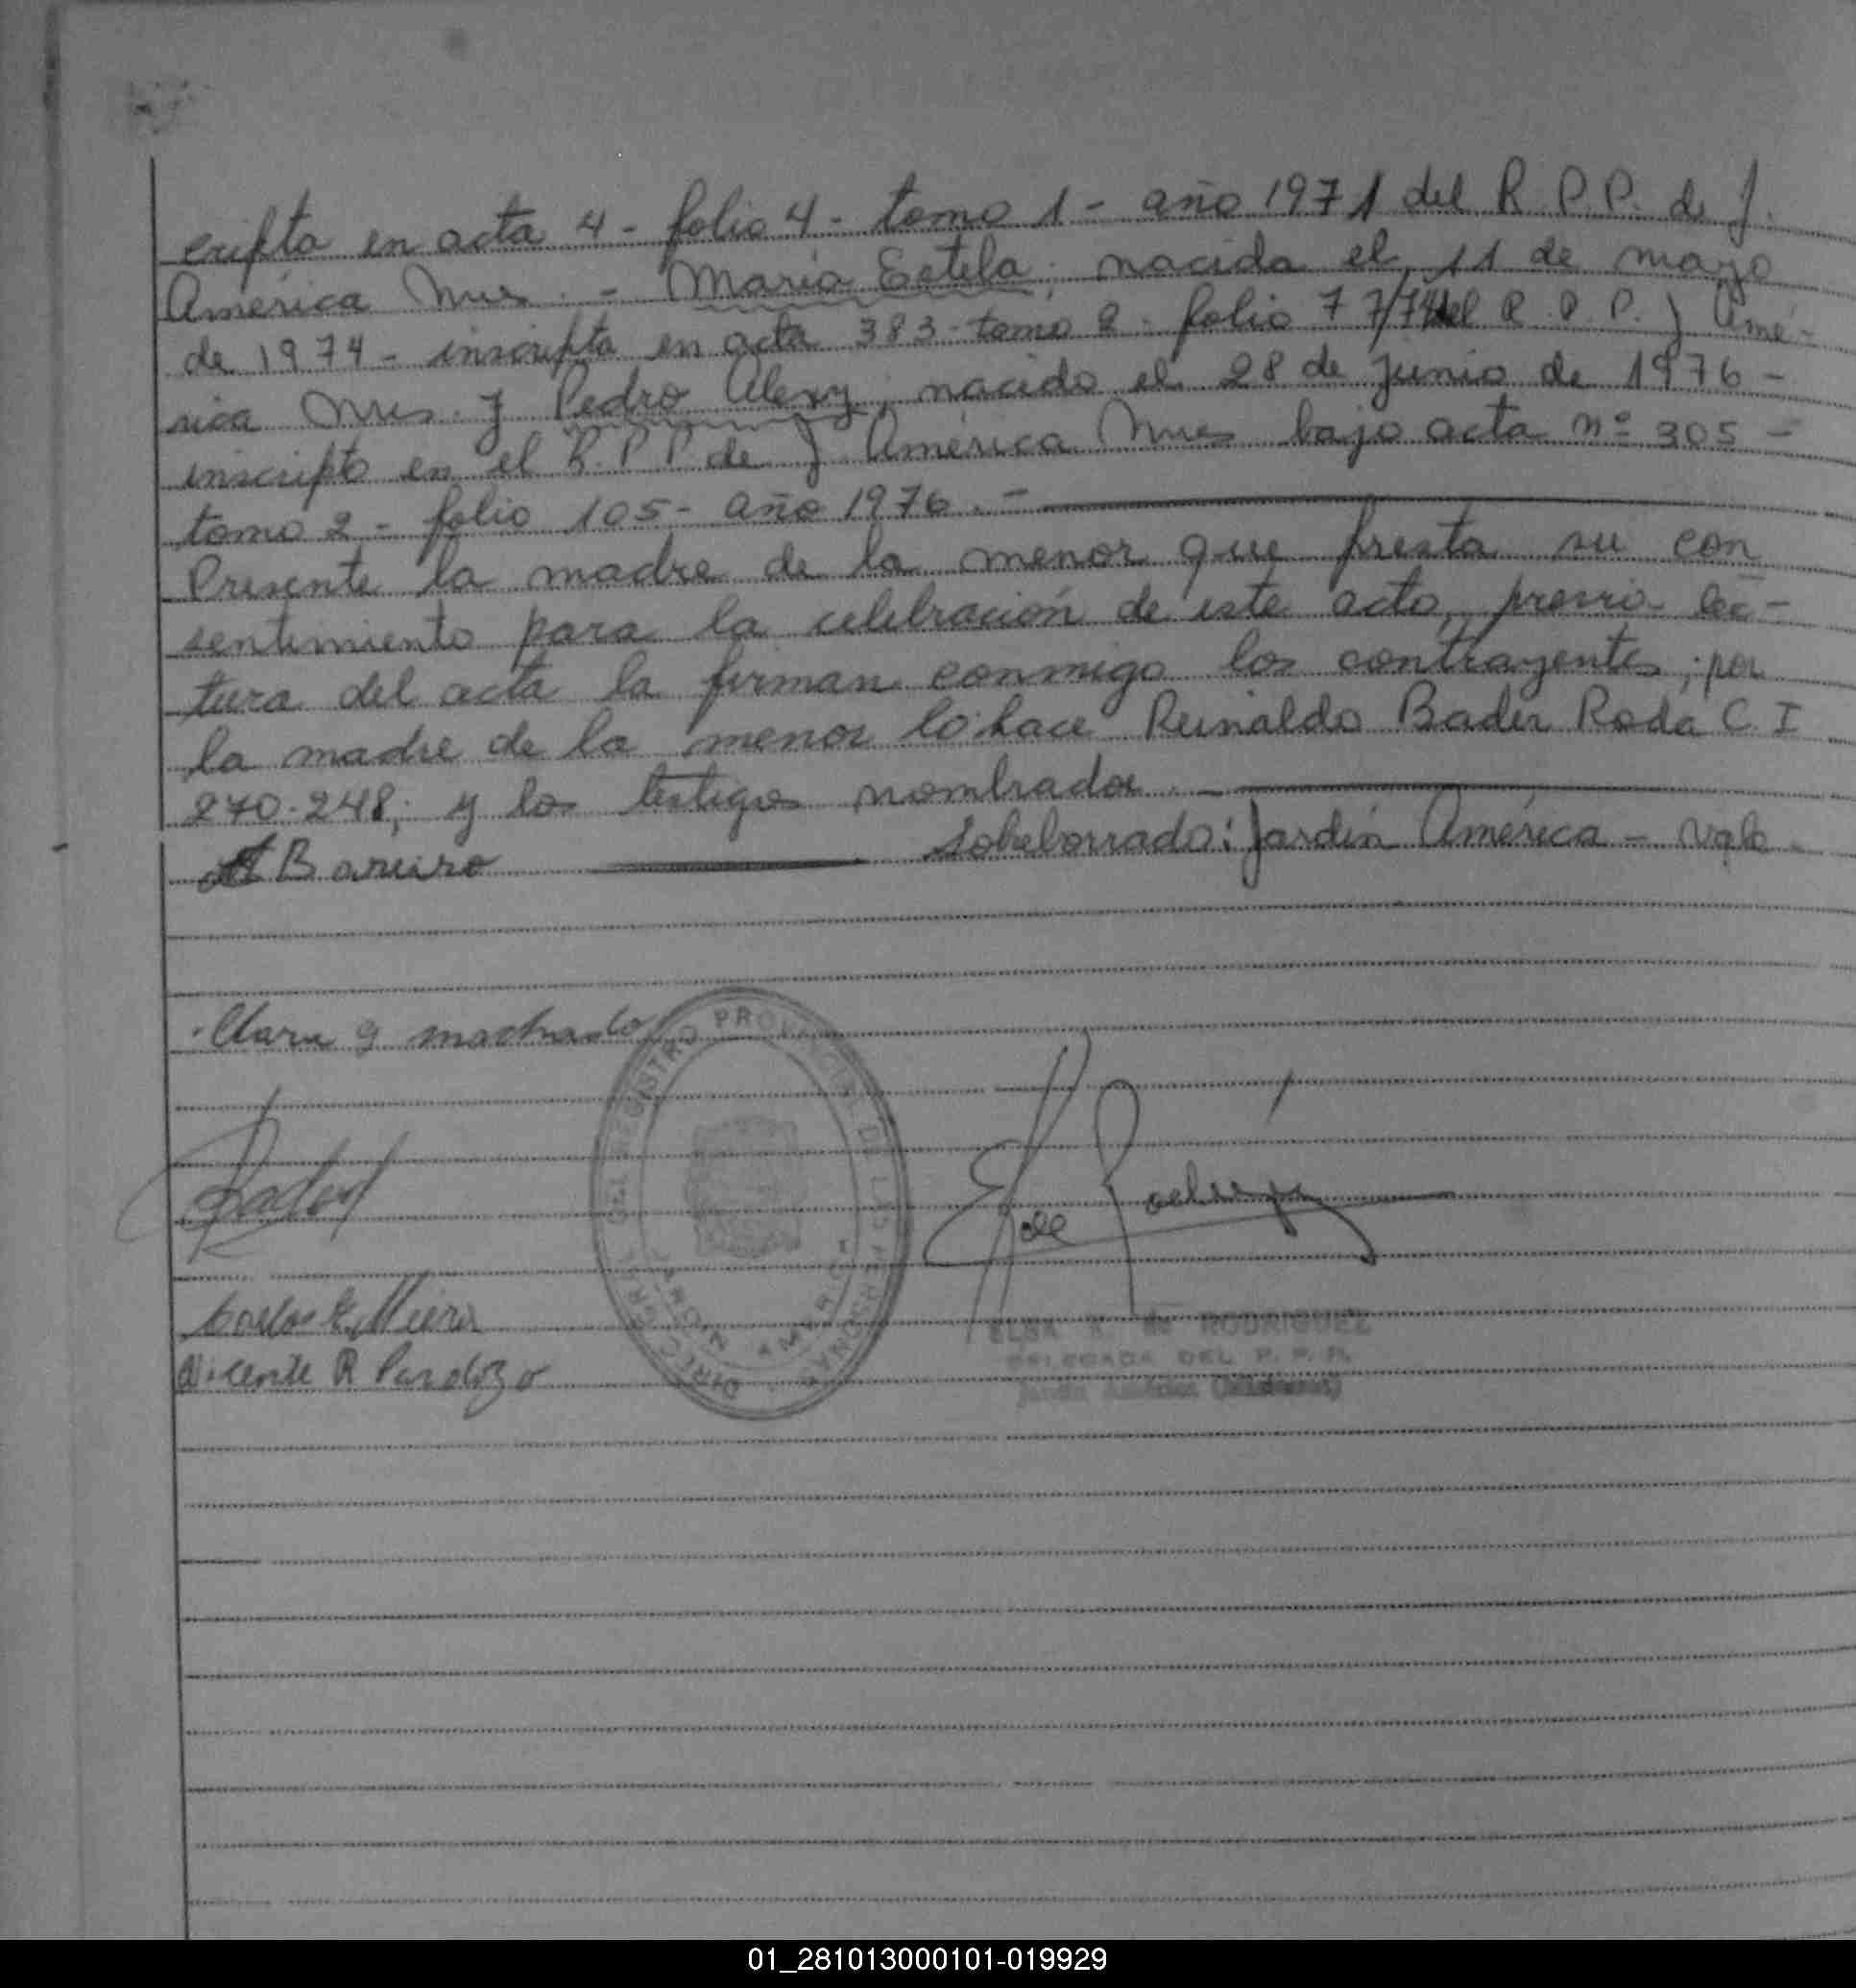 cripta en acta 4 - folio 4 - tomo 1 - año 1971 del R. P. P. de J.
América Mnes. - María Estela, nacida el 11 de mayo
de 1974 - inscripta en acta 383 - tomo 2 - folio 77/74 del R. P. P. J Amé-
rica Mnes. y Pedro Alexy, nacido el 28 de Junio de 1976 -
inscripto en el R. P. P. de J América Mnes bajo acta nº 305 -
tomo 2 - folio 105 - año 1976. -
Presente la madre de la menor que presta su con
sentimiento para la celebración de este acto, previa lec-
tura del acta la firman conmigo los contrayentes; por
la madre de la menor lo hace Reinaldo Bader Roda C. I
270.248; y los testigos nombrados. -
Sobreborrado: Jardín América - Vale -
A Bareiro
Clara g machado
REGISTRO PROVINCIAL DE LAS PERSONAS
AMERICA
ELSA K. de RODRIGUEZ
DELEGADA DEL R. P. P.
Jardín América (Misiones)